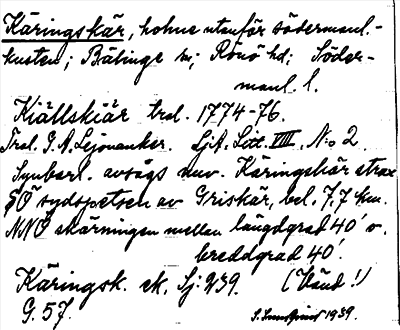 Käringskär, holme utanför södermanl.-
kusten; Bälinge sn; Rönö hd; Söder-
manl. l.
Kiällskiär trol. 1774-76.
Trol. G. A. Lejonanker. SjA. Litt. VIII, No 2.
Synbarl. avsågs nuv. Käringskär strax
SO sydspetsen av Griskär, bel. 7,7 km.
NNO skärningen mellan längdgrad 40' o.
breddgrad 40'.
Käringsk. ek. Sj 939. (Vänd!)
G. 57. 1939.